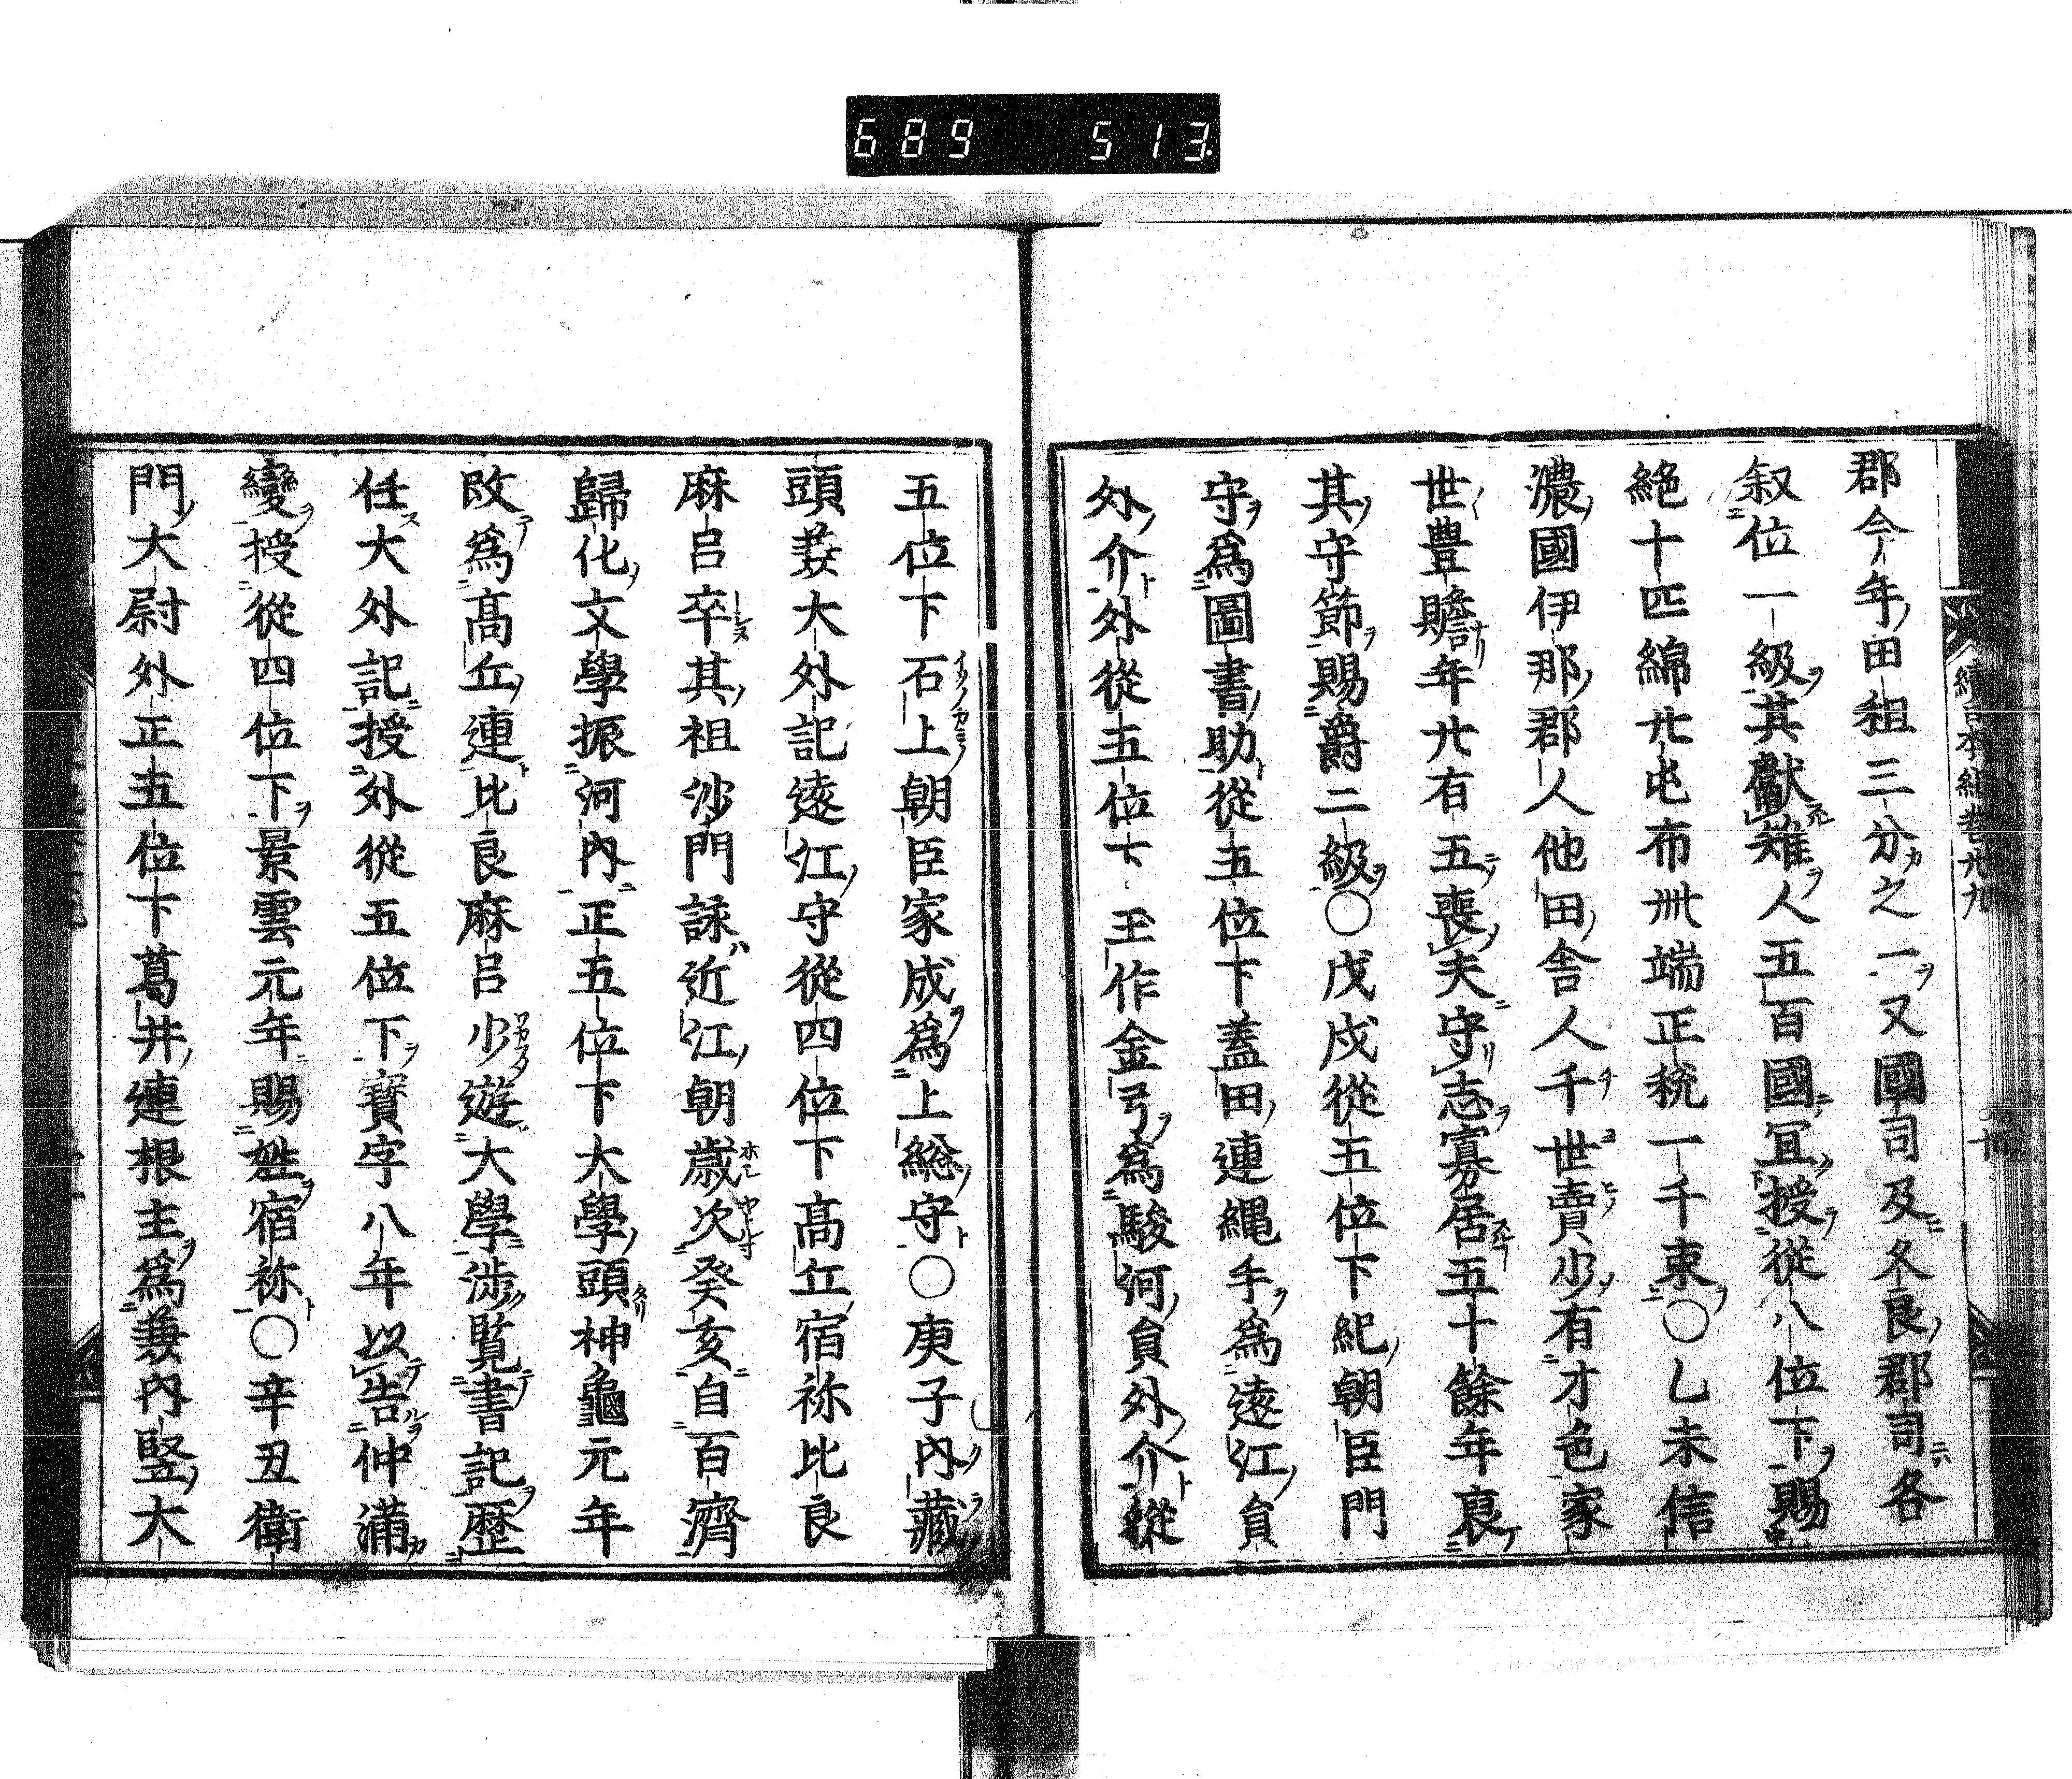 689 513
續日本紀卷廿九
郡今年田租三分之一又國司及久良郡司各
叙位一級其獻雉人五百國宜授從八位下賜
絁十匹綿廿屯布卅端正税一千束○乙未信
濃國伊那郡人他田舎人千世賣少有才色家
世豊贍年廿有五喪夫守志寡居五十餘年褒
其守節賜爵二級○戊戌從五位下紀朝臣門
守爲圖書助從五位下蓋田連縄手爲遠江員
外介外從五位下王作金弓爲駿河員外介從
五位下石上朝臣家成爲上総守○庚子内藏
頭兼大外記遠江守從四位下髙丘宿祢比良
麻呂卒其祖沙門詠近江朝歳次癸亥自百濟
歸化文學振河内正五位下大學頭神龜元年
改爲髙丘連比良麻呂少遊大學渉覧書記歴
任大外記授外從五位下寳字八年以告仲滿
變授從四位下景雲元年賜姓宿祢○辛丑衛
門大尉外正五位下葛井連根主爲兼内竪大